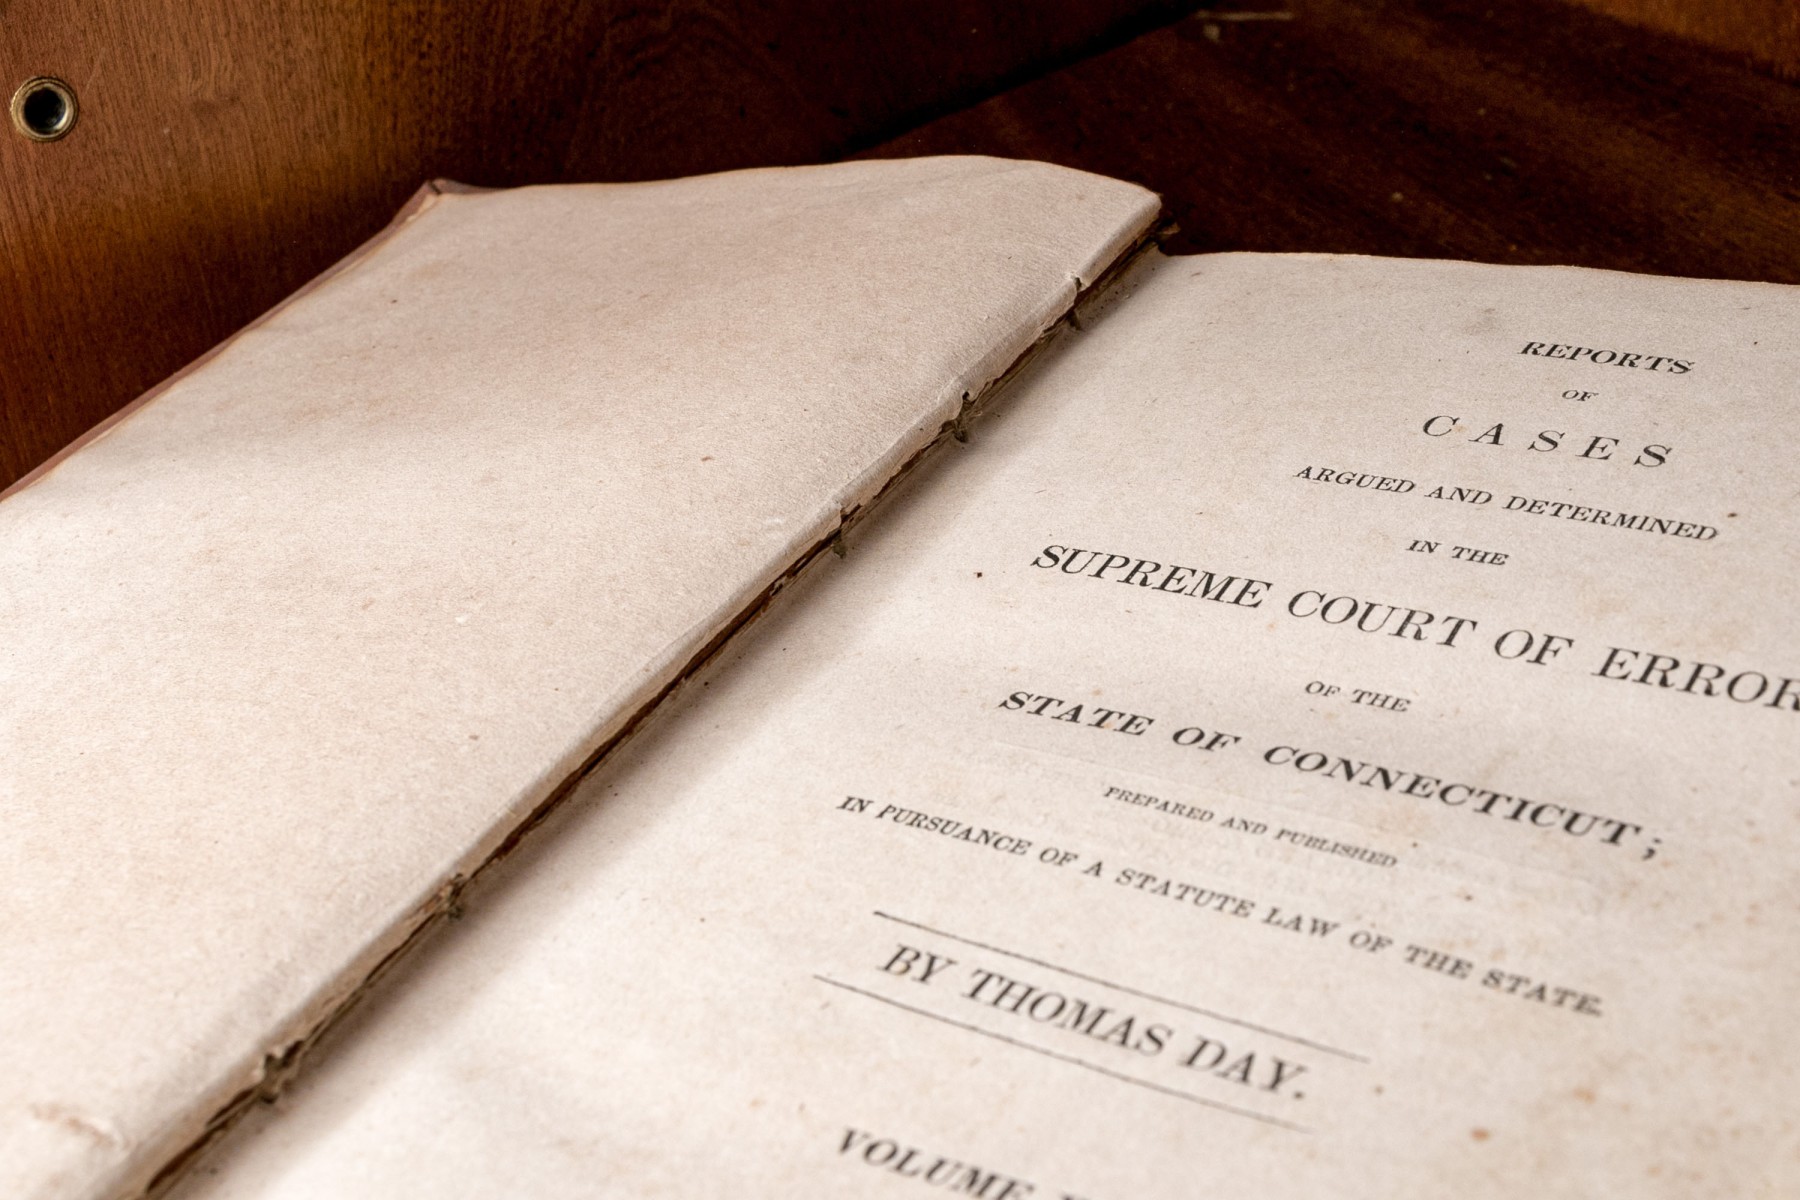 REPORTS
OF
CASES
ARGUED AND DETERMINED
IN THE
SUPREME COURT OF ERROR
OF THE
STATE OF CONNECTICUT;
PREPARED AND PUBLISHED
IN PURSUANCE OF A STATUTE LAW OF THE STATE.
BY THOMAS DAY.
VOLUME